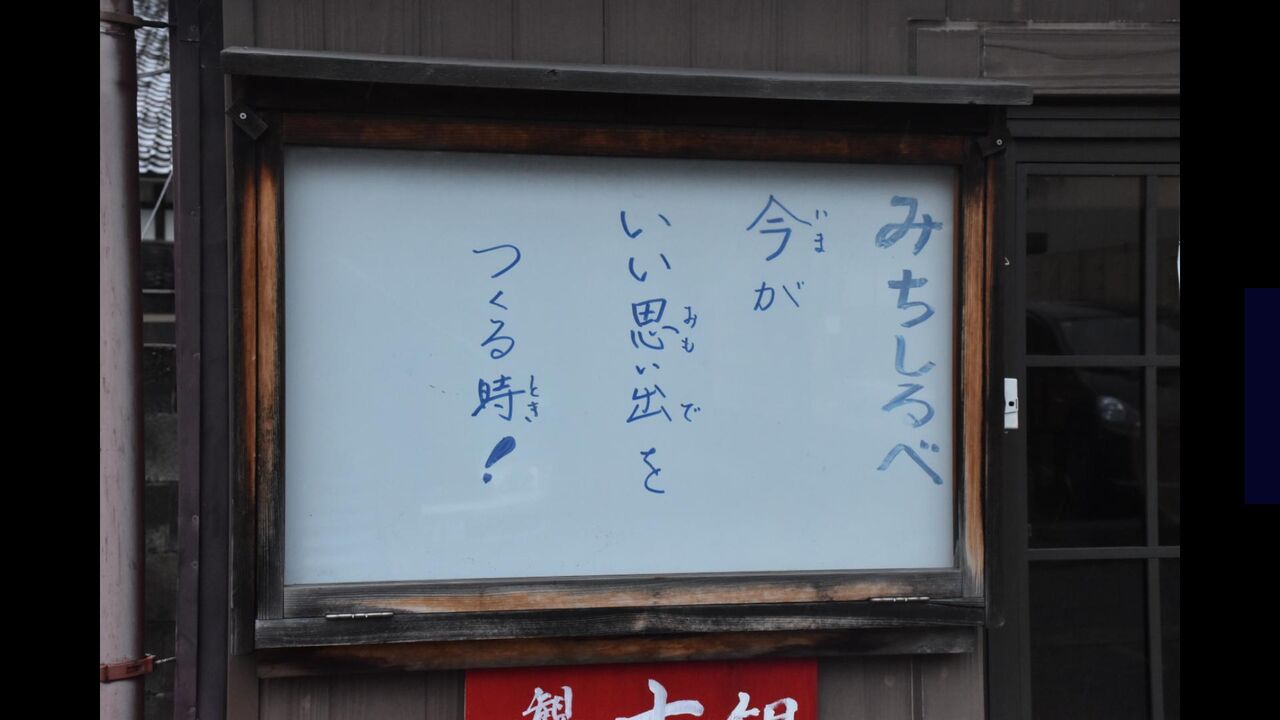 みちしるべ
今が
いい思い出を
つくる時!
いま
おも
で
とき